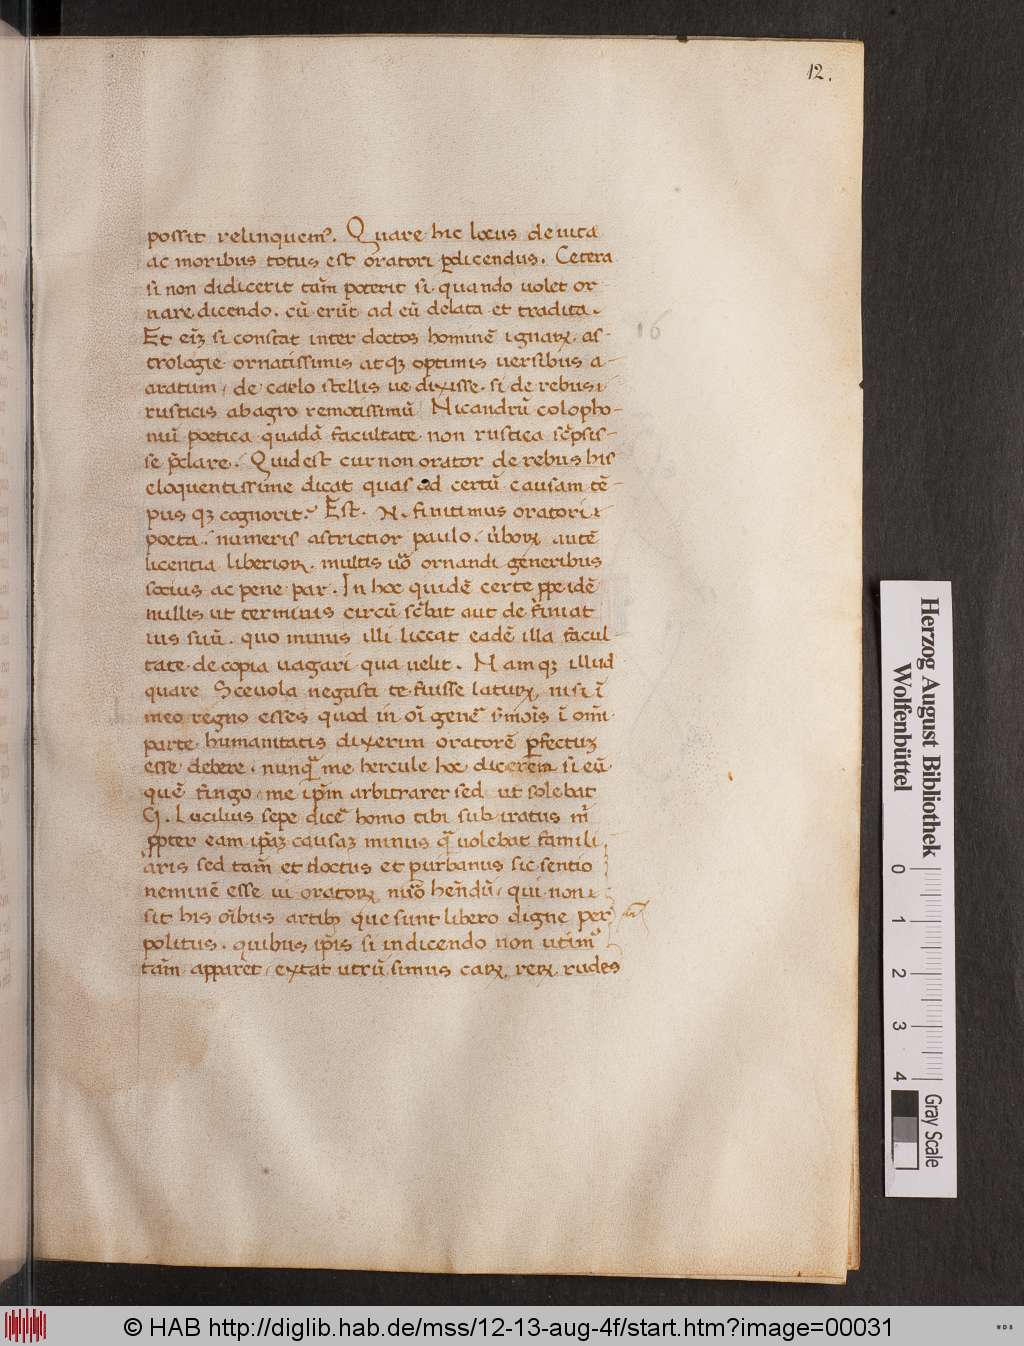 12.
possit relinquem᷑. Quare hic locus de uita
ac moribus totus est oratori ꝑdicendus. Cetera
si non didicerit tam̅ poterit si quando uolet or-
nare dicendo. cū erūt ad eū delata et tradita.
Et eīꝫ si constat inter doctos hominē ignarꝝ. as-
trologie ornatissimis atqꝫ optimis uersibus a-
aratum, de caelo stellis ue dixisse. si de rebus
rusticis ab agro remotissimū Nicandrū colopho-
niū poetica quadā facultate non rustica sc̄psis-
se p̄clare. Quid est cur non orator de rebus his
eloquentissime dicat quas ad certū causam tē-
pus qꝫ cognorit? Est. N. finitimus oratori
poeta. numeris astrictior paulo. ūborꝝ autē
licentia liberiorꝝ. multis ūo ornandi generibus
socius ac pene par. In hoc quidē certe ꝓpe idē
nullis ut terminis circū sc̄bat aut definiat
ius suū. quo minus illi liceat eadē illa facul-
tate de copia uagari qua uelit. Namqꝫ illud
quare Sceuola negasti te fuisse laturꝝ nisi ī
meo regno esses quod in oī gene᷑ s̄mois ī om̅i
parte humanitatis dixerim oratorē ꝑfectuꝫ
esse debere. nunqᷓ me hercule hoc dicerem si eū
quē fingo me ip̅m arbitrarer sed ut solebat
G. Lucilius sepe dice᷑ homo tibi sub iratus m̅
ꝓpter eam ip̅aꝫ causaꝫ minus qᷓ uolebat famili
aris sed tam̅ et doctus et purbanus sic sentio
neminē esse ui oratorꝝ nūo hen̄dū, qui non
sit his oībus artibꝫ que sunt libero digne per
politus. quibus ip̅is si in dicendo non utim᷑
tam̅ apparet, extat utrū simus earꝝ rerꝝ rudes
16
Herzog August Bibliothek
Wolfenbüttel
0 1 2 3 4
Gray Scale
© HAB http://diglib.hab.de/mss/12-13-aug-4f/start.htm?image=00031